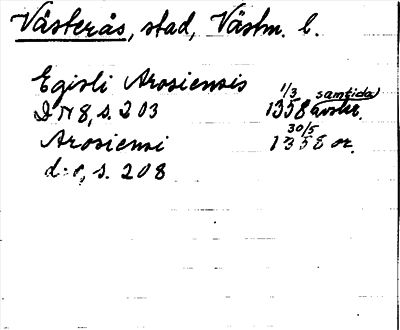 Västerås, stad, Västm. l.
Egisli Arosiensis 1/3 samtida
DN 8, s. 203 1358 avskr.
Arosiensi 30/5 1358 or.
d:o, s. 208